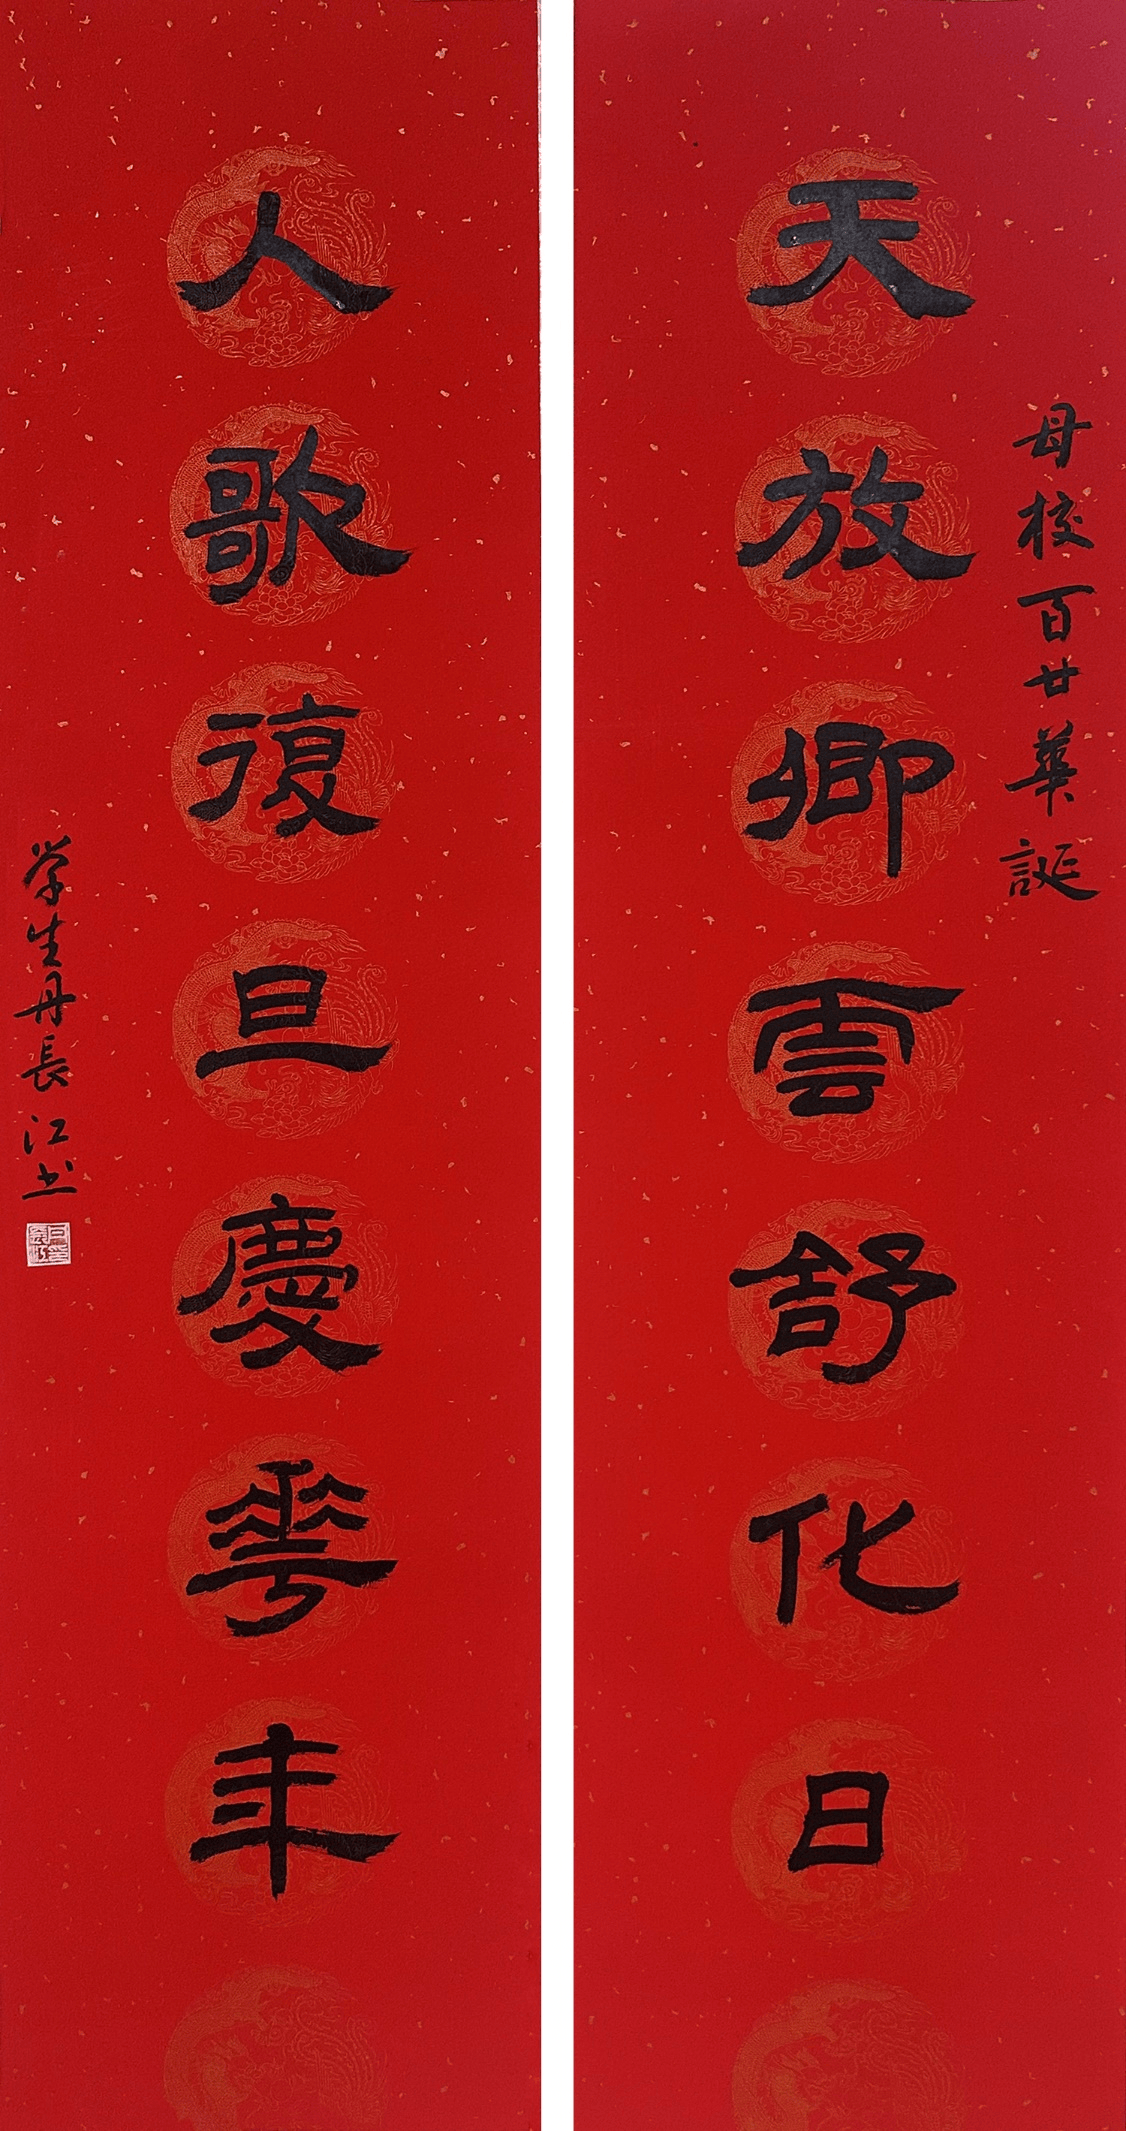 母校百廿華誕
天放卿雲舒化日
人歌復旦慶華年
学生丹長江书